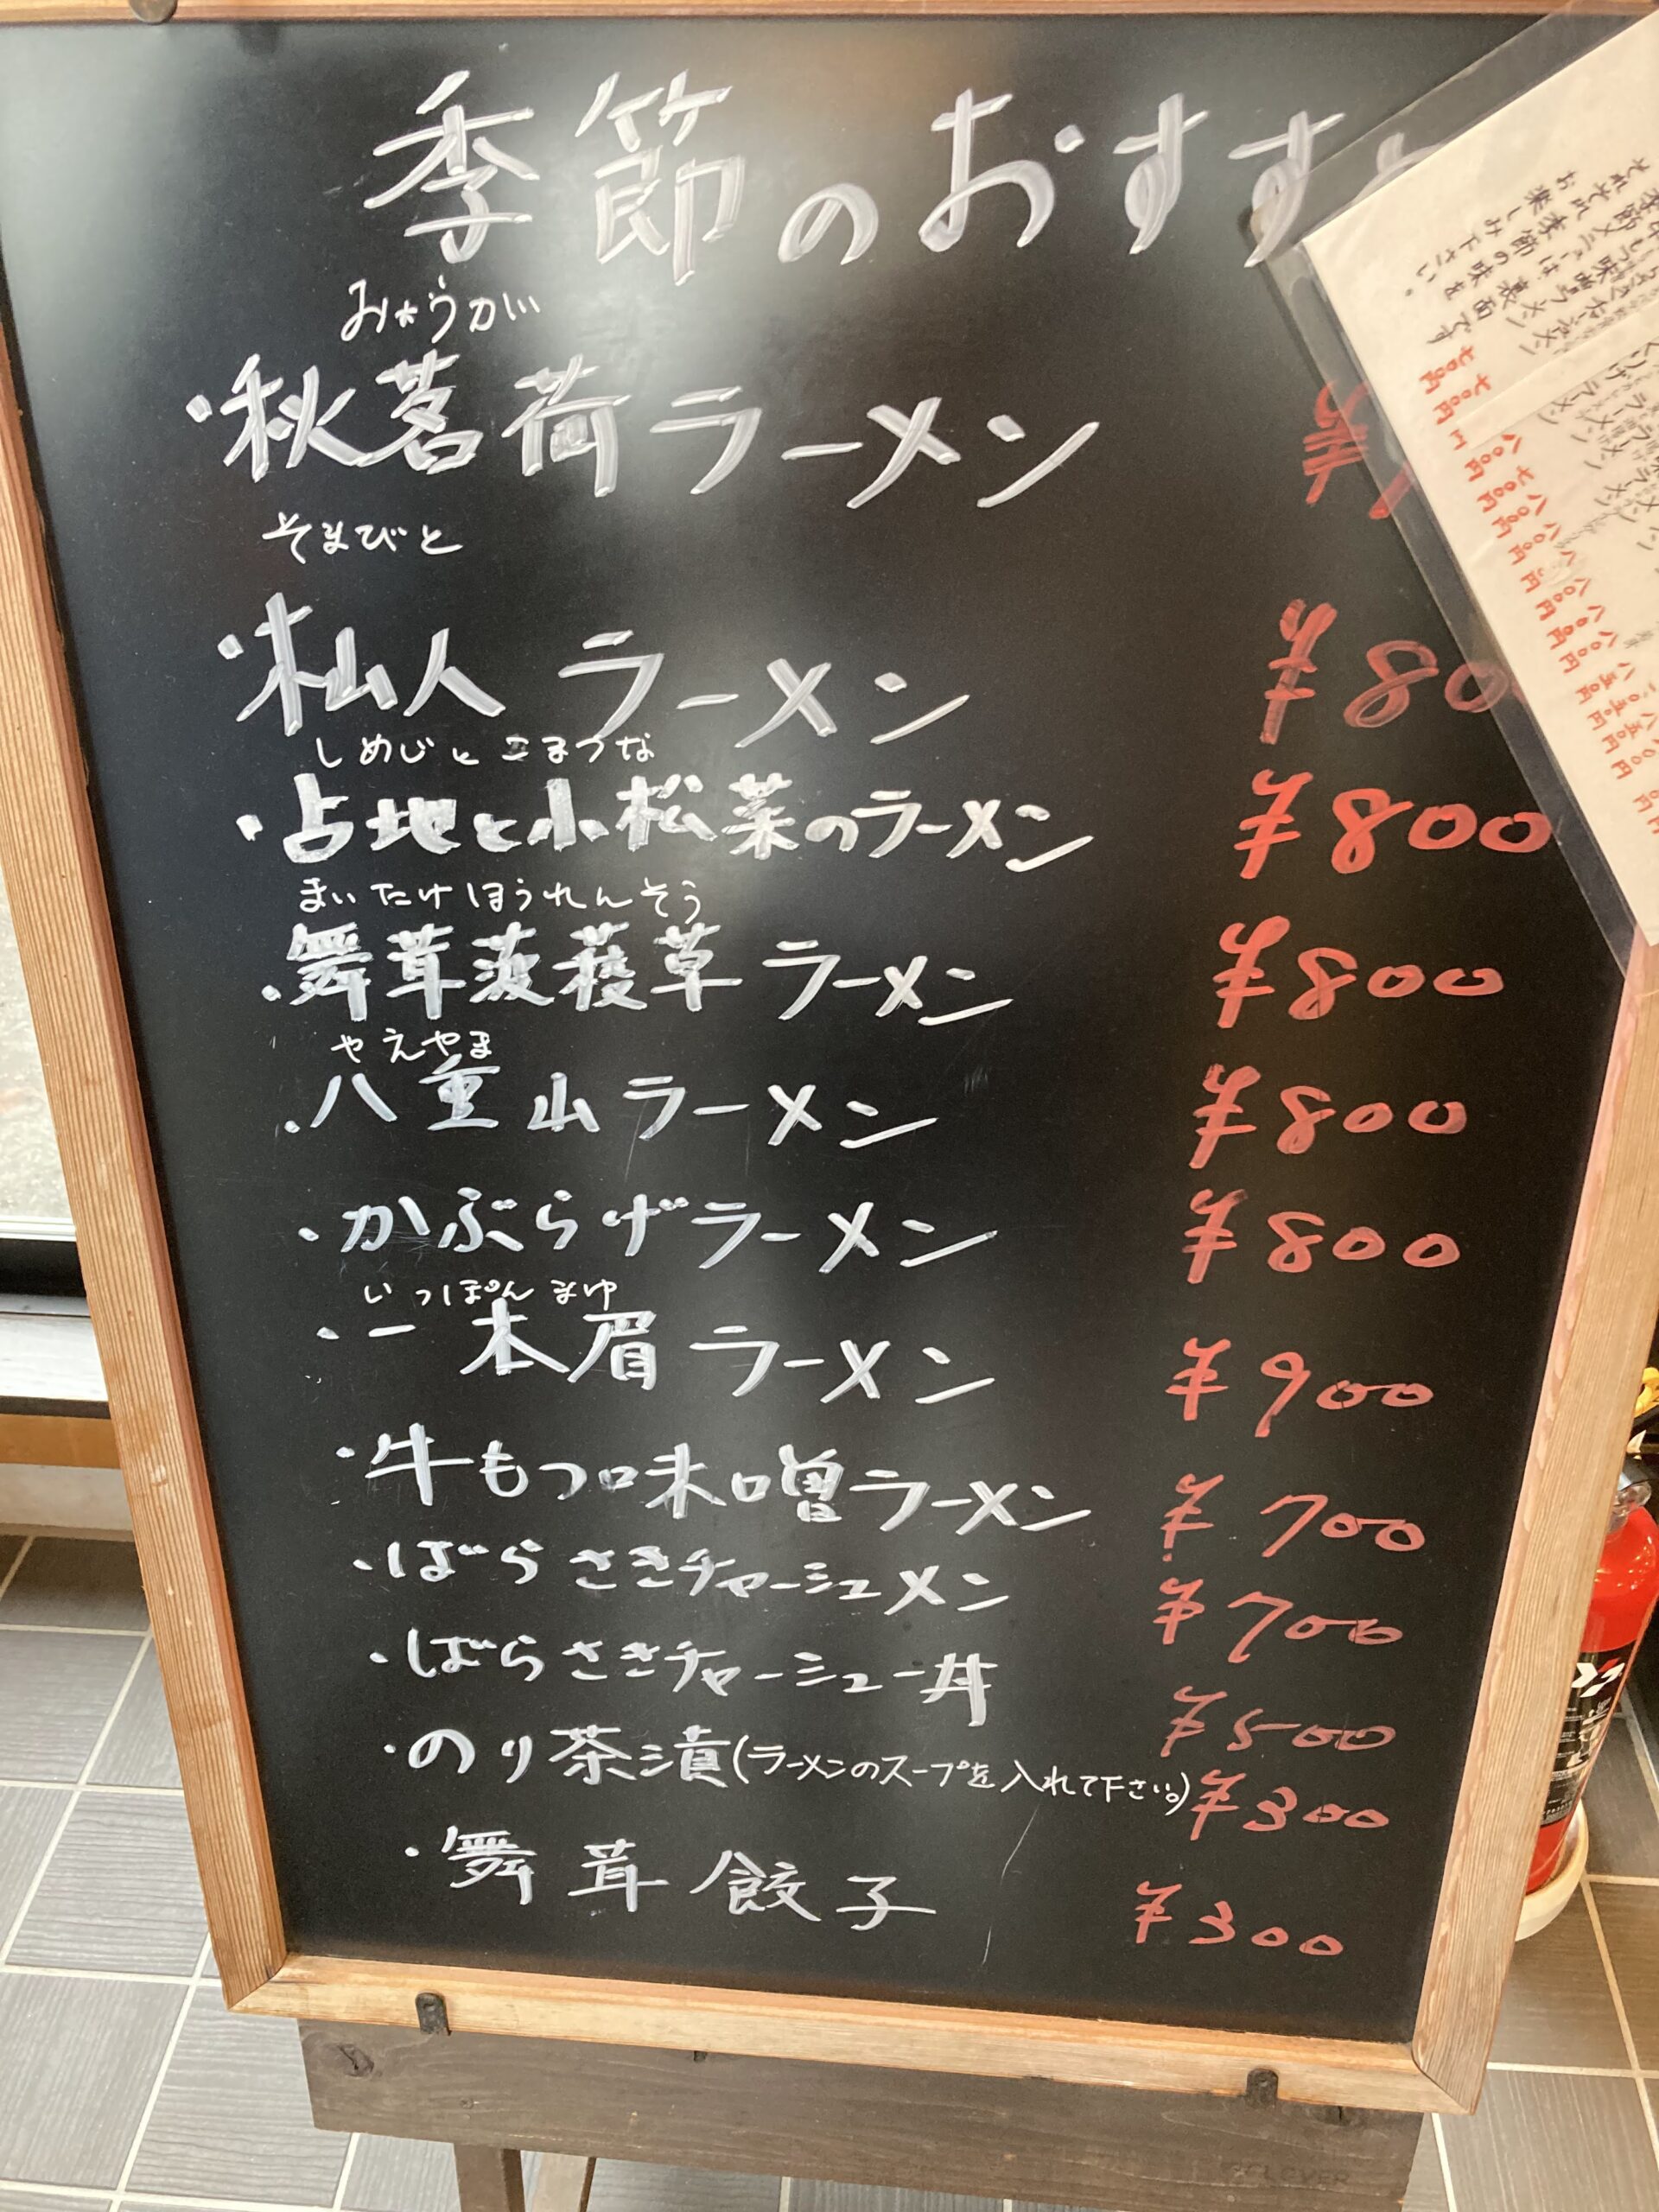 季節のおすす
みょうが
・秋茗荷ラーメン ¥
そまびと
・杣人ラーメン ¥80
しめじとこまつな
・占地と小松菜のラーメン ¥800
まいたけほうれんそう
・舞茸菠薐草ラーメン ¥800
やえやま
・八重山ラーメン ¥800
・かぶらげラーメン ¥800
いっぽんまゆ
・一本眉ラーメン ¥900
・牛もつ味噌ラーメン ¥700
・ばらさきチャーシューメン ¥700
・ばらさきチャーシュー丼 ¥500
・のり茶漬(ラーメンのスープを入れて下さい。) ¥300
・舞茸餃子 ¥300
季節メニューは裏面です
それぞれ季節の味を
お楽しみ下さい。
CLOVER